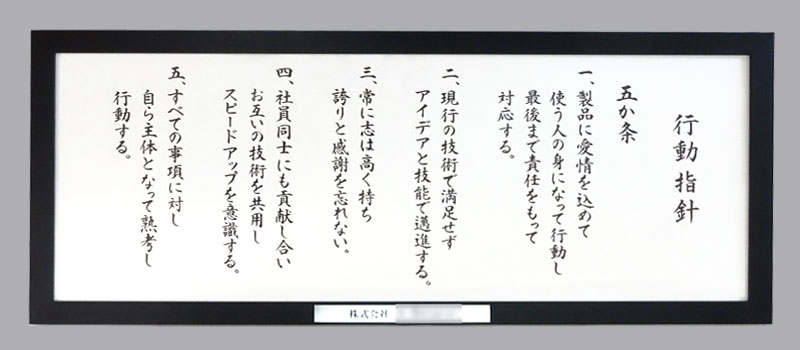 行動指針
五か条
一、製品に愛情を込めて
使う人の身になって行動し
最後まで責任をもって
対応する。
二、現行の技術で満足せず
アイデアと技能で邁進する。
三、常に志は高く持ち
誇りと感謝を忘れない。
四、社員同士にも貢献し合い
お互いの技術を共用し
スピードアップを意識する。
五、すべての事項に対し
自ら主体となって熟考し
行動する。
株式会社